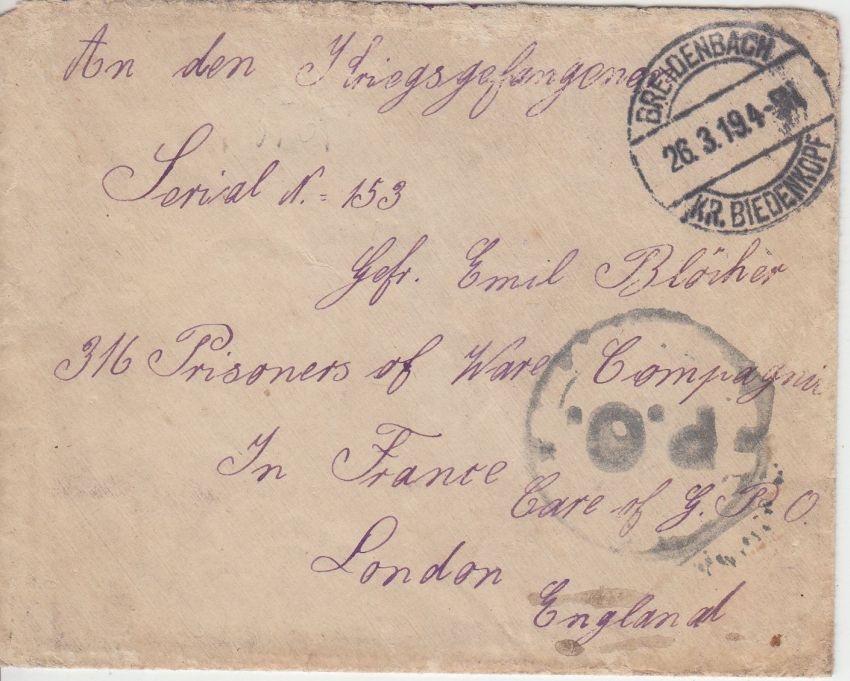 An den Kriegsgefangenen
BREIDENBACH
26. 3. 19. 4-5N
KR. BIEDENKOPF
Serial N. = 153
Gefr. Emil Blöcher
316 Prisoners of Ware Compagnie
P.O.
In France
Care of G. P. O.
London
England